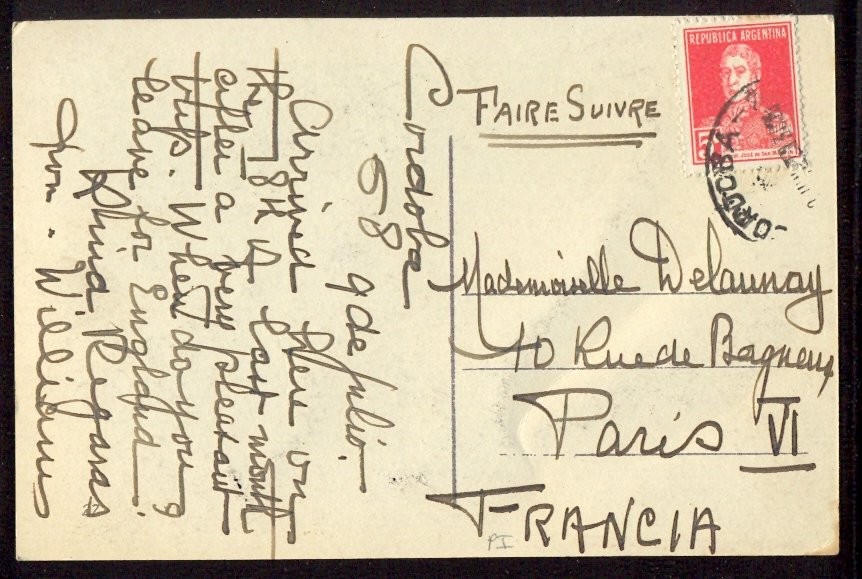 Cordoba
58 9 de Julio.
Arrived here on
the 18th of last month
after a very pleasant
trip. When do you
leave for England?
Kind Regards
from - Williams
FAIRE SUIVRE
REPUBLICA ARGENTINA
CORDOBA
Mademoiselle Delaunay
10 Rue de Bagneux
Paris VI
FRANCIA
PI